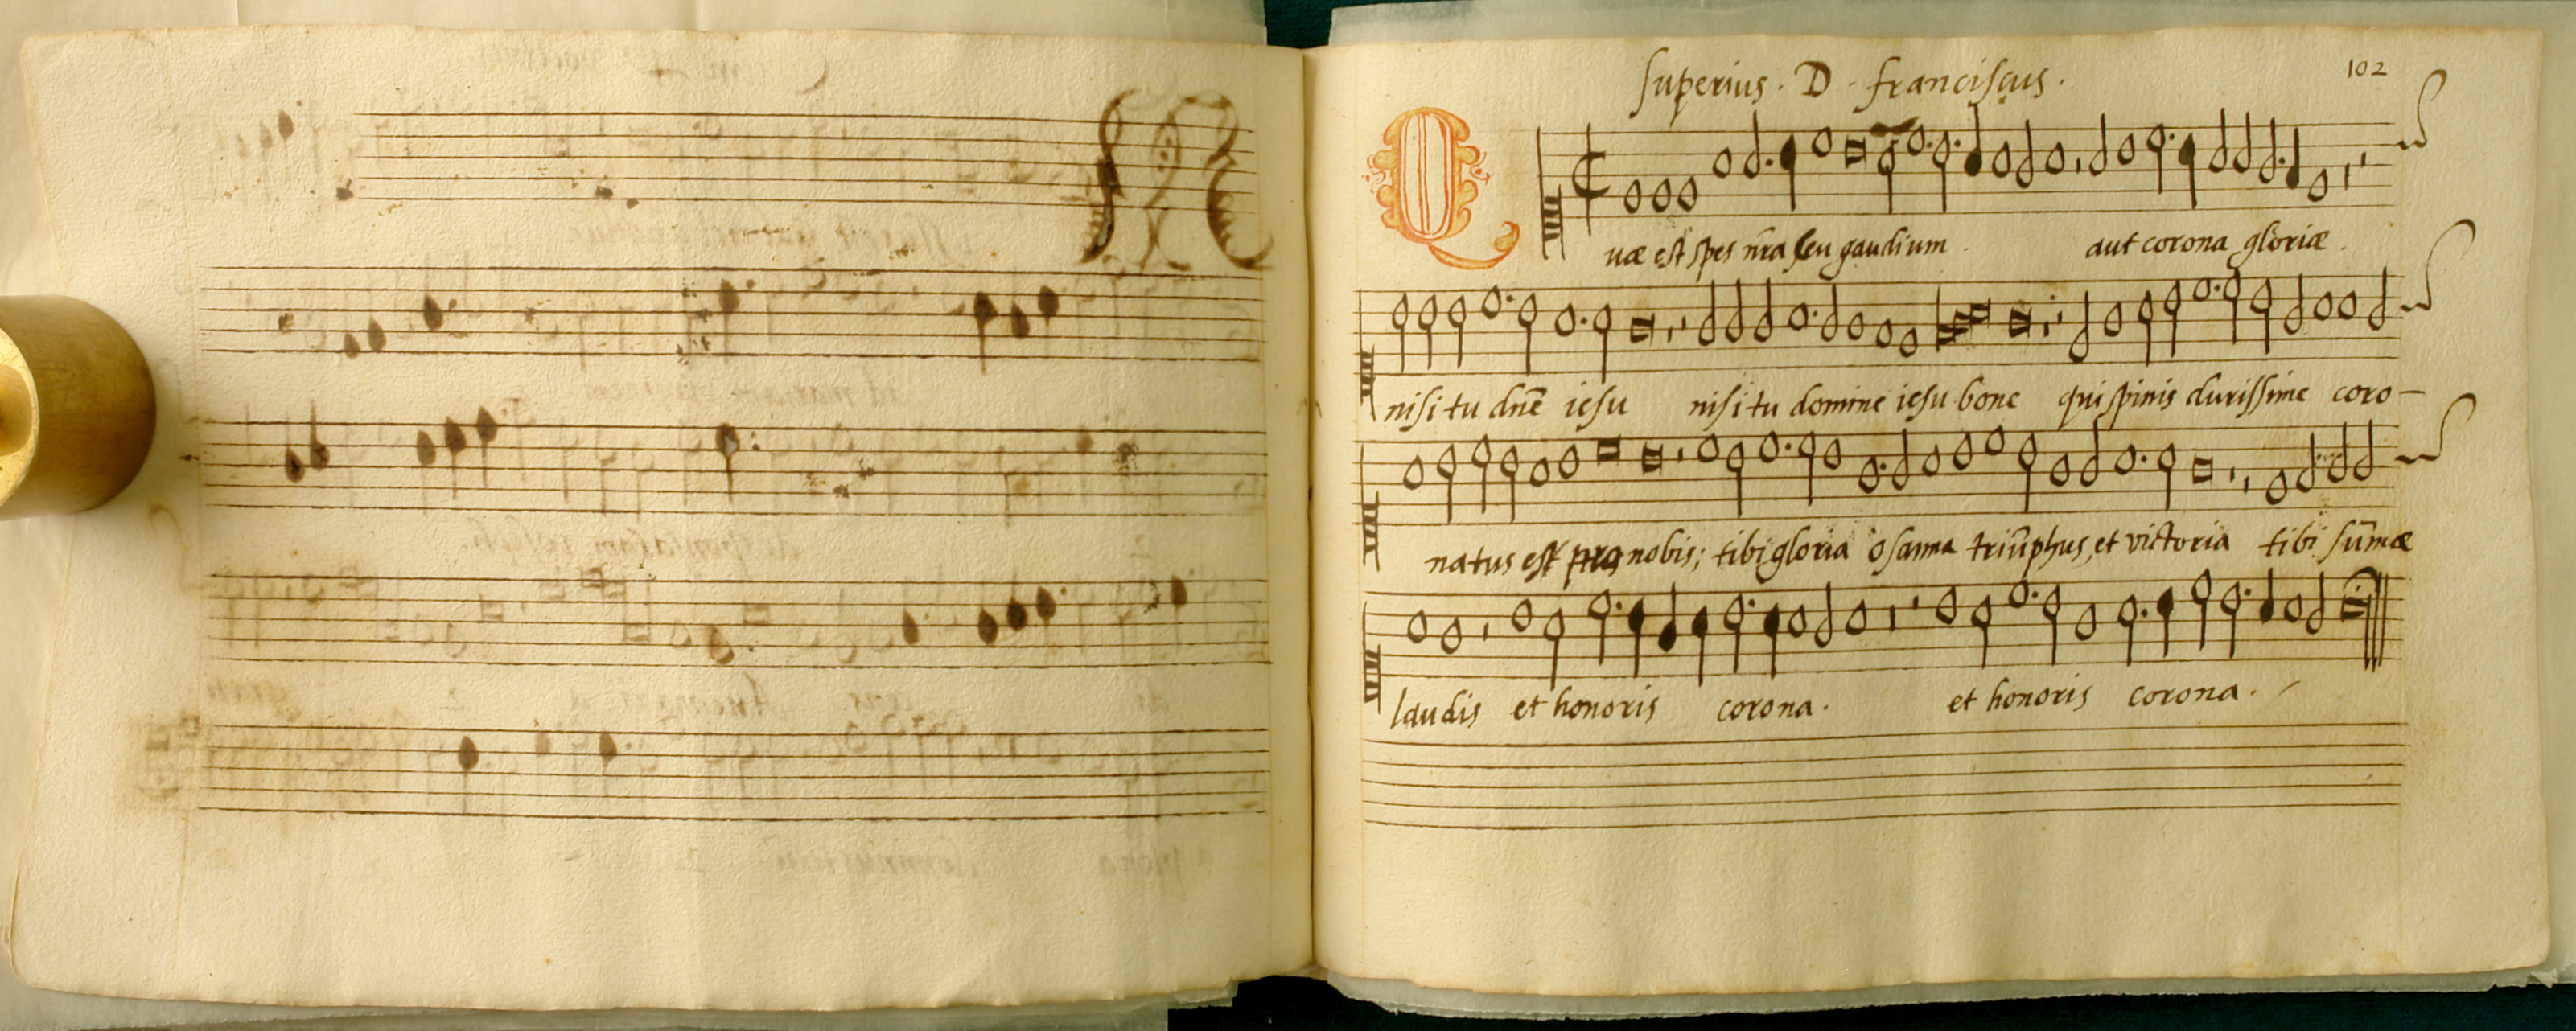 Superius · D · franciscus ·
102
Quæ est spes nr̄a seu gaudium . aut corona gloriæ .
nisi tu dnē iesu nisi tu domine iesu bone qui spinis durissime coro-
natus est pro nobis; tibi gloria osanna triūphus, et victoria tibi sūmæ
laudis et honoris corona . et honoris corona .